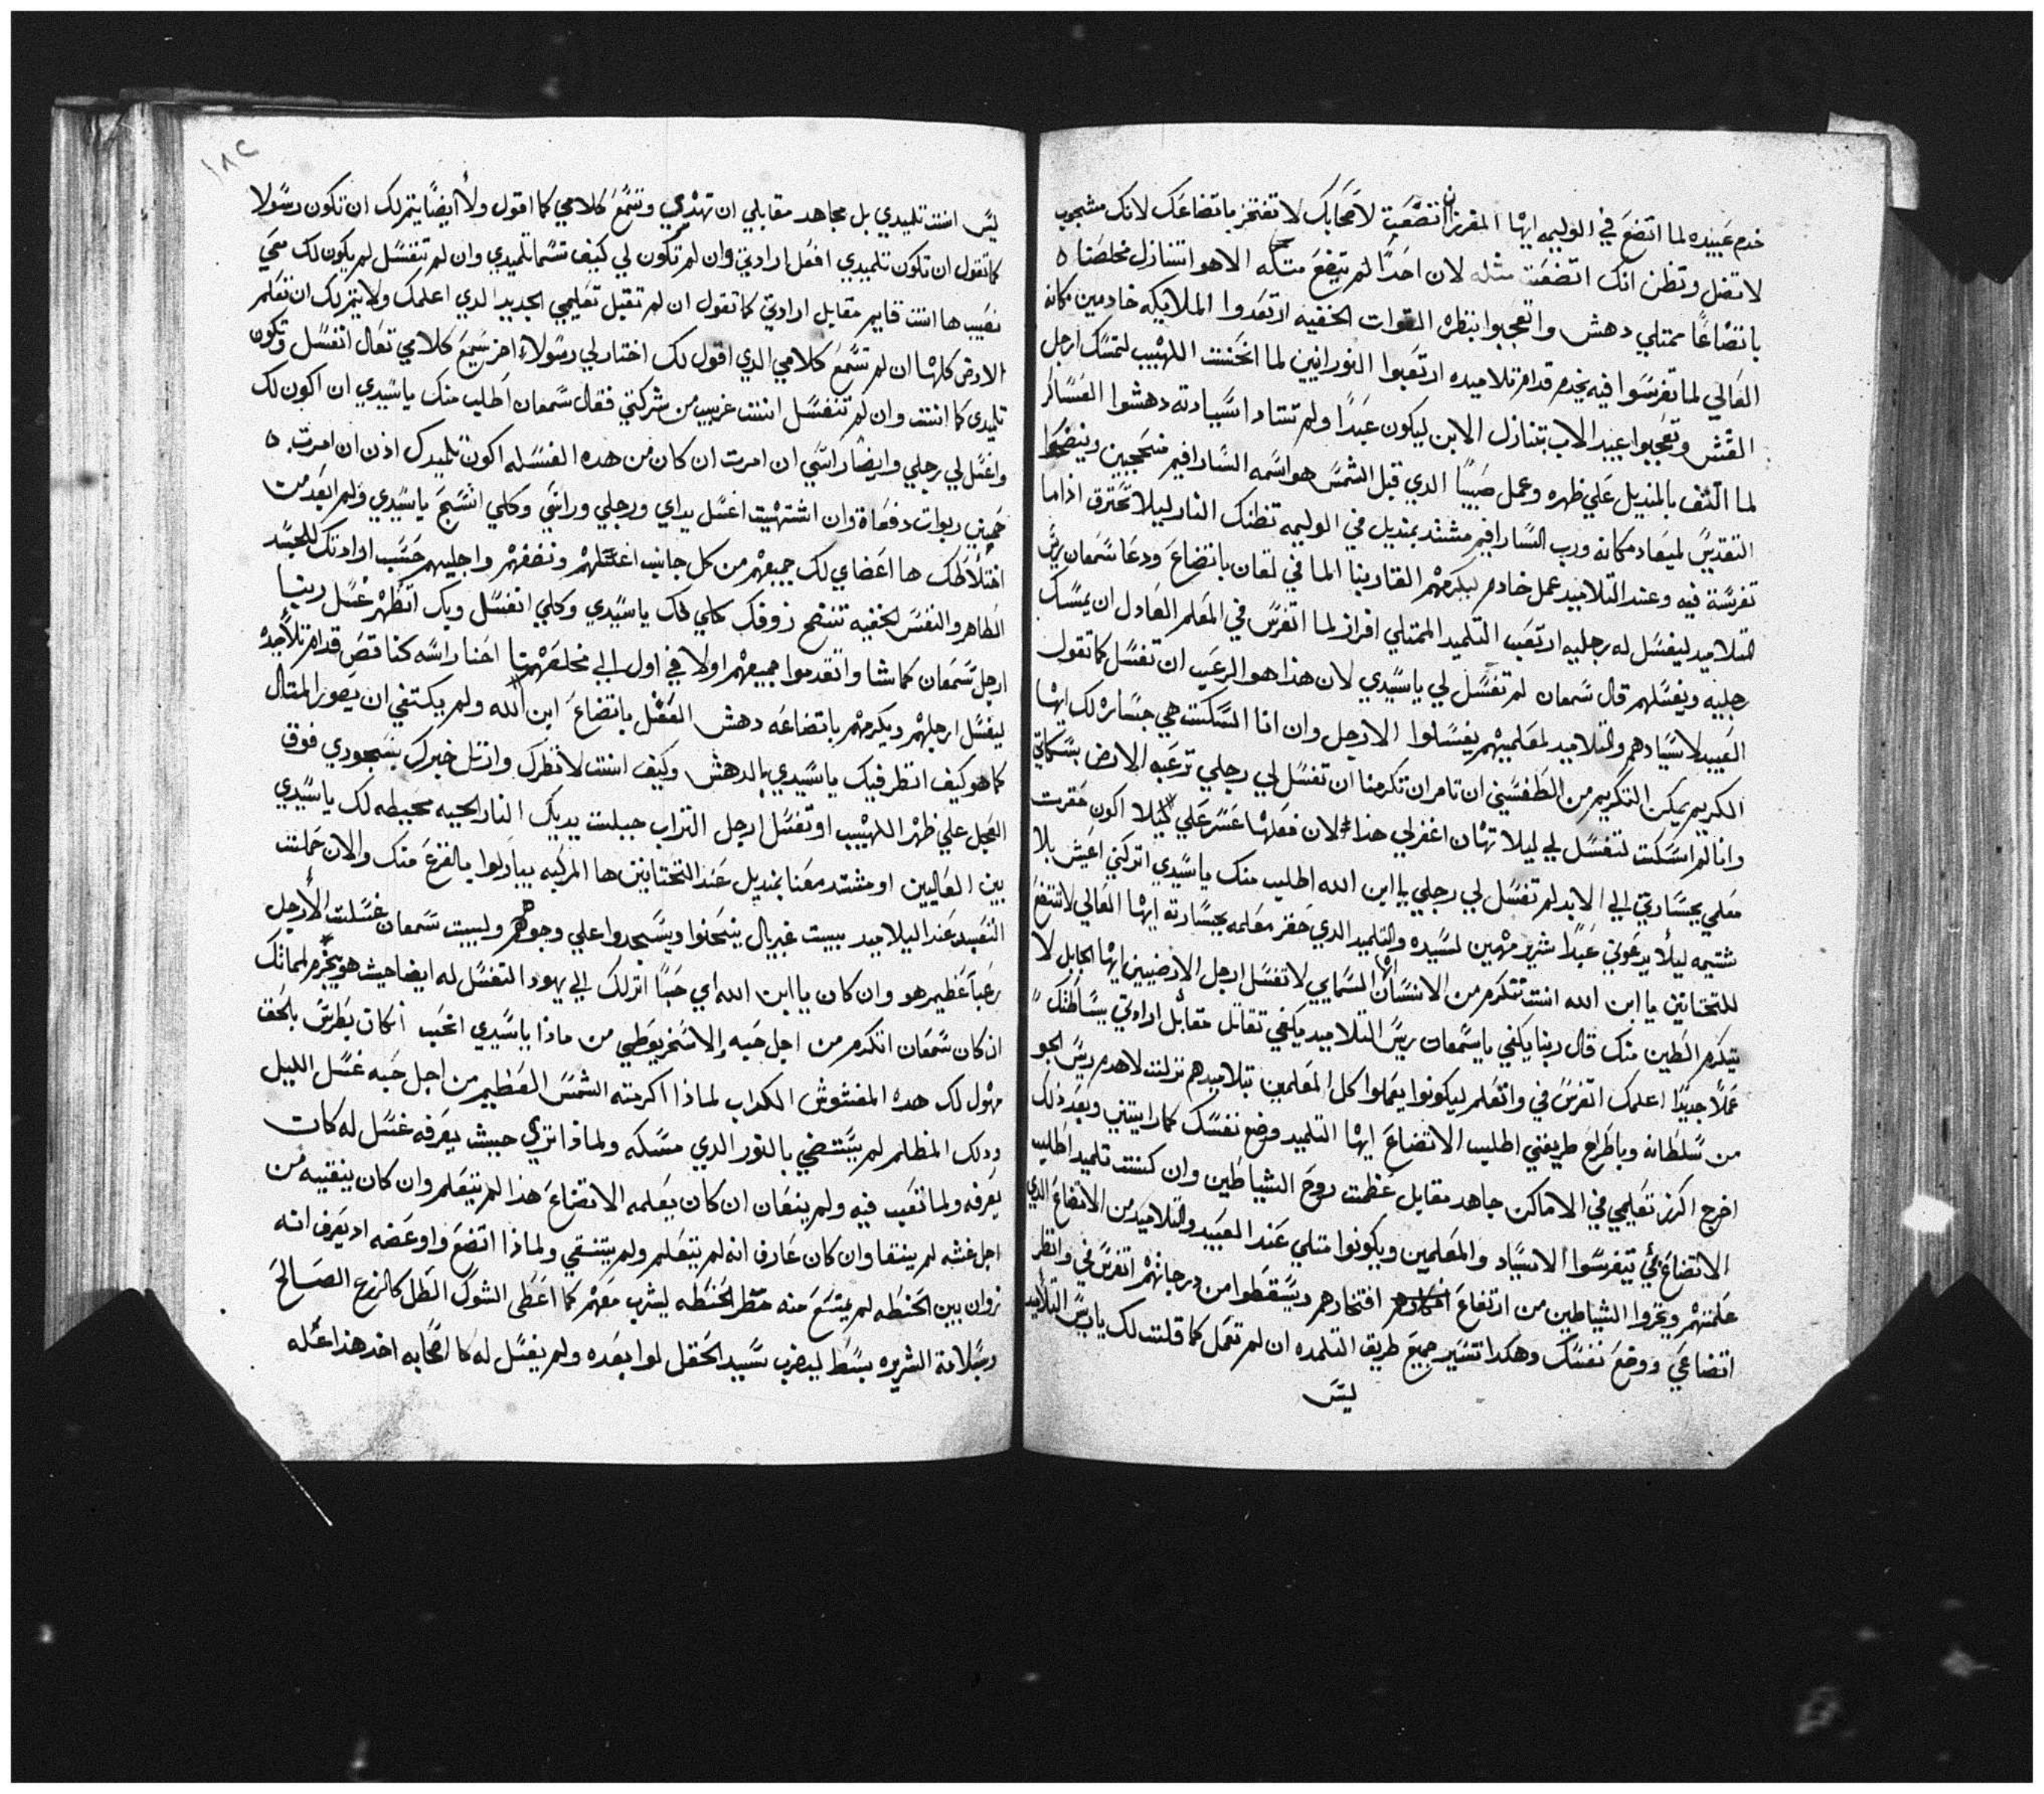 خدم عبيده لما اتضع في الوليمه ايها المفرزان اتضعت لاصحابك لا تفتخر باتضاعك لانك مشجوب
لا تضل وتظن انك اتضعت مثله لان احدًا لم يتضع مثله الا هو اتنازل مخلصنا
باتضاعًا ممتلي دهش واتعجبوا بنظره القوات الخفيه ارتعدوا الملايكه خادمين مكانه
العالي لما تفرسوا فيه يخدم قدام تلاميده ارتعبوا النورانيين لما انحنت اللهيب لتمسك ارجل
القش وتعجبوا عبيد الاب بتنازل الابن ليكون عبدًا ولم تتنادا سيادته دهشوا العساكر
لما التف بالمنديل علي ظهره وعمل صبيًا الدي قبل الشمس هو اسمه السارافيم منحجبين وينضحوا
التقديس لميعاد مكانه ورب السارافيم مشتد بمنديل في الوليمه تظنك النار ليلا تحترق اذا ما
تفرسة فيه وعند التلاميد عمل خادم ليكرمهم القا ربنا الما في لقان باتضاع ودعا سمعان ريس
التلاميد ليغسل له رجليه ارتعب التلميد الممتلي افراز لما اتفرس في المعلم العادل ان يمسك
رجليه ويغسلهم قال سمعان لم تغسل لي ياسيدي لان هذا هو الرعب ان تغسل كما تقول
العبيد لاسيادهم والتلاميد لمعلميهم يغسلوا الارجل وان انا السكت هي جساره لك ايها
الكريم يمكن التكريم من الطقسيني ان تامر ان تكرمنا ان تغسل لي رجلي ترعبه الارض بسكاتي
وانا لم اسكت لتغسل لي ليلا تهان اغفر لي هذا لان فعلها عسر علي ليلا اكون حقرت
معلمي بجسارتي الي الابد لم تغسل لي رجلي يا ابن الله اطلب منك ياسيدي اتركني اعيش بلا
شتيمه ليلا يدعوني عبدًا شرير مهين لسيده والتلميد الدي حقر معلمه بجسارته ايها العالي لا تتضع
للتحتانين يا ابن الله انت تتكرم من الانسان السمايي لا تغسل ارجل الارضيين ايها الجابل لا
يتكرم الطين منك قال ربنا يكفي ياسمعان ريس التلاميد يكفي تقاتل مقابل ارادتي ببساطتك
عملًا جديدًا اعلمك اتفرس في واتعلم ليكونوا يعملوا كل المعلمين بتلاميدهم نزلت لاهدم ريس الجو
من سلطانه وباطراح طريقتي اطلب الاتضاع ايها التلميد وضع نفسك كما رايتني وبعد ذلك
اخرج اكرز تعليمي في الاماكن جاهد مقابل عظمت روح الشياطين وان كنت تلميد اطلب
الاتضاع بي تتفرسوا الاسياد والمعلمين ويكونوا متلي عند العبيد والتلاميد من الاتضاع الدي
علمتهم ويخزوا الشياطين من ارتفاع افتخارهم ويسقطوا من درجاتهم اتفرس في وانظر
اتضاعي ووضع نفسك وهكدا تسير جميع طريق التلمده ان لم تعمل كما قلت لك ياريس التلاميد
ليس
١٨٢
ليس انت تلميدي بل مجاهد مقابلي ان تهتدي وتسمع كلامي كما اقول ولا ايضًا يتم لك ان تكون رسولا
كما تقول ان تكون تلميدي افعل ارادتي وان لم تكون لي كيف تسما تلميدي وان لم تنغسل لم يكون لك معي
نصيب ها انت قايم مقابل ارادتي كما تقول ان لم تقبل تعليمي الجديد الدي اعلمك ولا يتم لك ان تعلم
الارض كلها ان لم تسمع كلامي الدي اقول لك اختار لي رسولا اخر سمع كلامي تعال انغسل وتكون
تلميدي كما انت وان لم تنغسل انت غريب من شركتي فقال سمعان اطلب منك ياسيدي ان اكون لك
واغسل لي رجلي وايضًا راسي ان امرت ان كان من هده الغسله اكون تلميدك اذن ان امرت
حميني ربوات دفعاة وان اشتهيت اغسل يداي ورجلي وراسي وكلي اتسبح ياسيدي ولم ابعد من
اختلاطك ها اعضاي لك جميعهم من كل جانب اغسلهم ونضفهم واجليهم حسب ارادتك للجسد
الطاهر والنفس الخفيه تنضح زوفك كلي لك ياسيدي وكلي انغسل وبك اتطهر غسل ربنا
ارجل سمعان كما شا واتقدموا جميعهم اولا في اول الي مخلصهم احنا راسه كناقص قدام تلاميده
ليغسل ارجلهم ويكرمهم باتضاعه دهش العقل باتضاع ابن الله ولم يكتفي ان يصور المتال
كما هو كيف انظر فيك ياسيدي بالدهش وكيف انت لا نظرك وانزل خبرك بسجودي فوق
العجل علي ظهر اللهيب او تغسل ارجل التراب جبلت يديك النار الحيه محيطه لك ياسيدي
بين العاليين او مشتد معنا بمنديل عند التحتانين ها المركبه يباركوا بالفزع منك والان حملت
التعب عند التلاميد ببيت غبريال ينحنوا ويسجدوا علي وجوههم ولبيت سمعان غسلت الارجل
رعبًا عظيم هو وان كان يا ابن الله اي حبًا اترلك الي يهودا لتغسل له ايضا حيث هو يخرم لمانك
ان كان سمعان اتكرم من اجل حبه والاسخريوطي من ماذا ياسيدي احب اكان بطرس بالحق
مهول لك هده المغشوش الكداب لماذا اكرمته الشمس العظيم من اجل حبه غسل الليل
ودلك المظلم لم يستضي بالنور الدي مسكه ولماذا تري حيث يعرفه غسل له كان
يعرفه ولما تعب فيه ولم ينعان ان كان يعلمه الاتضاع هذا لم يتعلم وان كان ينقيه من
اجل غشه لم ينتقا وان كان عارف انه لم يتعلم ولم يتنقي ولماذا اتضع واوعضه اد يعرف انه
زوان بين الحنطه لم يمتنع منه مطر الحنطه ليشرب معهم كما اعطي الشوك الطل كالزرع الصالح
وبلاثة الشريره بسط ليضرب سيد الحقل لوا بعده ولم يغسل له كالصحابه اخد هذا عمله